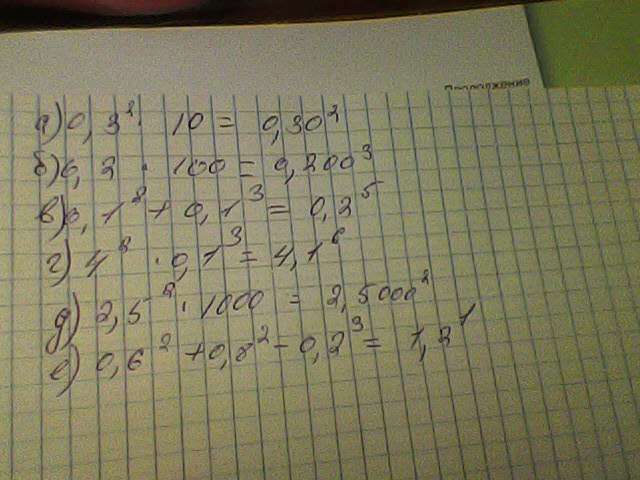 Продолжение
а) 0,3² · 10 = 0,30²
б) 0,2 · 100 = 0,200³
в) 0,1² + 0,1³ = 0,2⁵
г) 4² · 0,1³ = 4,1⁶
д) 2,5² · 1000 = 2,5000²
е) 0,6² + 0,8² - 0,2³ = 1,2¹